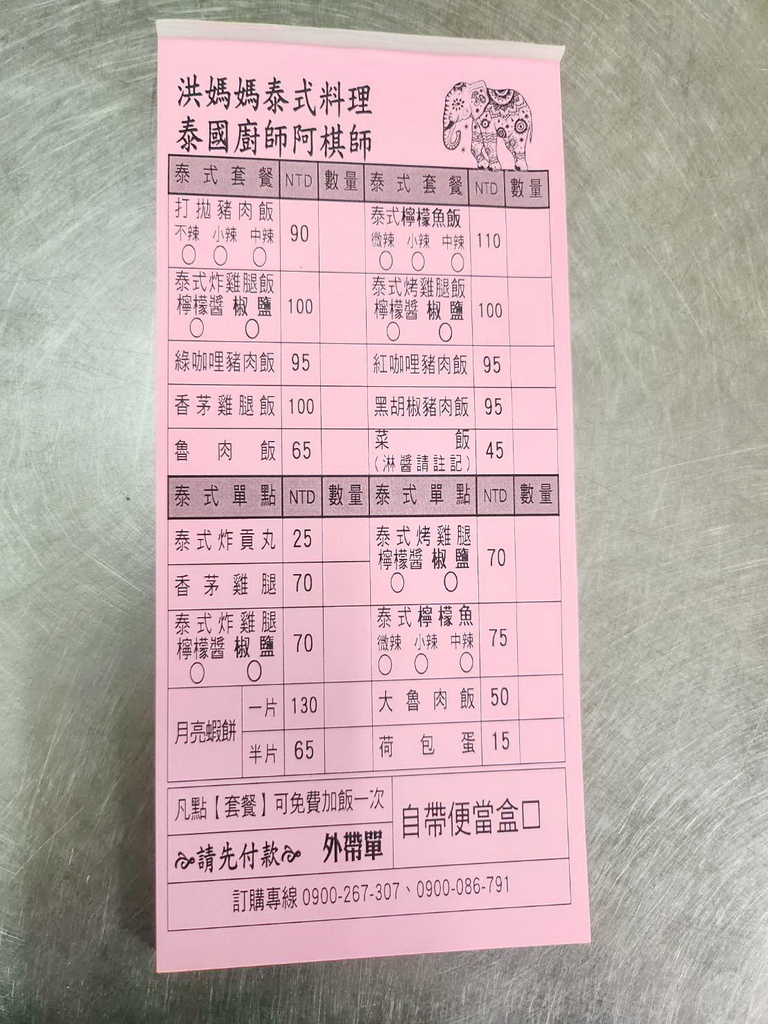 洪媽媽泰式料理
泰國廚師阿棋師
泰式套餐 NTD 數量 泰式套餐 NTD 數量
打拋豬肉飯 90 泰式檸檬魚飯 110
不辣 小辣 中辣 微辣 小辣 中辣
泰式炸雞腿飯 100 泰式烤雞腿飯 100
檸檬醬 椒鹽 檸檬醬 椒鹽
綠咖哩豬肉飯 95 紅咖哩豬肉飯 95
香茅雞腿飯 100 黑胡椒豬肉飯 95
魯肉飯 65 菜飯 45
(淋醬請註記)
泰式單點 NTD 數量 泰式單點 NTD 數量
泰式炸貢丸 25 泰式烤雞腿 70
檸檬醬 椒鹽
香茅雞腿 70
泰式炸雞腿 70 泰式檸檬魚 75
檸檬醬 椒鹽 微辣 小辣 中辣
月亮蝦餅 一片 130 大魯肉飯 50
半片 65 荷包蛋 15
凡點【套餐】可免費加飯一次
自帶便當盒□
請先付款 外帶單
訂購專線 0900-267-307、0900-086-791